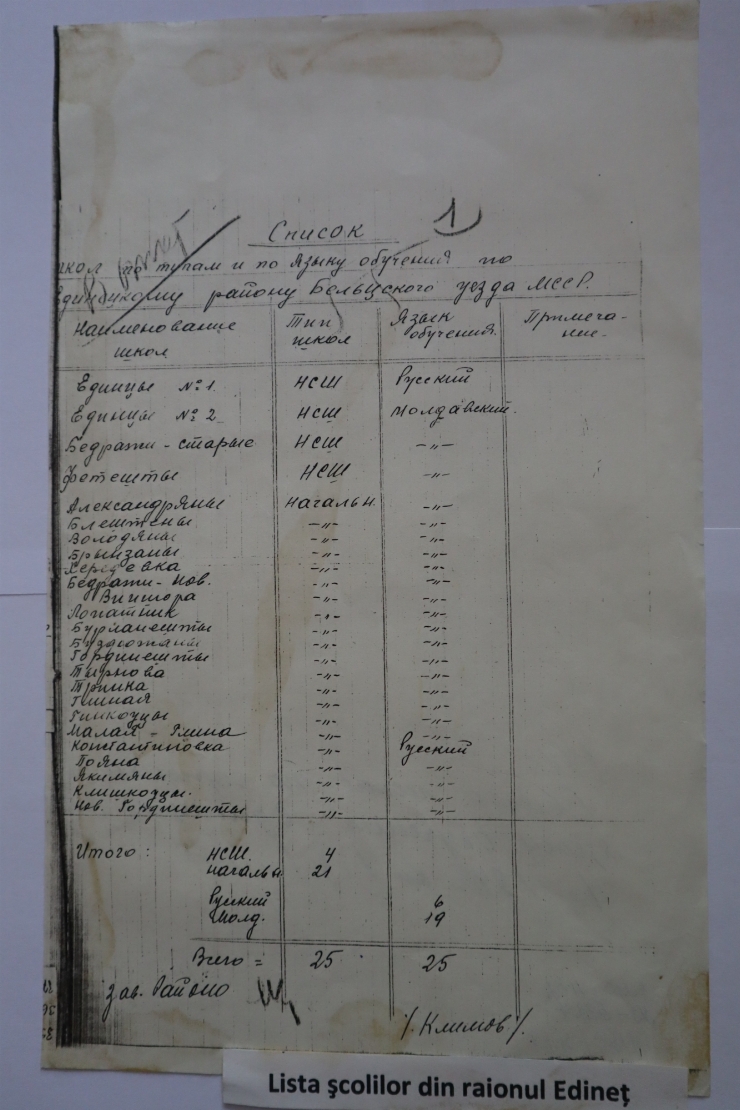 1
Список
школ по типам и по языку обучения по
Единецкому району Бельцского уезда МССР.
Наименование школ | Тип школ | Язык обучения. | Примеча-ние.
Единцы №1. НСШ Русский
Единцы №2 НСШ Молдавский.
Бедражи-старые НСШ -"-
Фетешты НСШ -"-
Александряны Начальн. -"-
Блештены -"- -"-
Володяны -"- -"-
Брынзаны -"- -"-
-"- -"-
Бедражи-Нов. -"- -"-
Вишора -"- -"-
Лопатник -"- -"-
Бурланешты -"- -"-
Буздюжаны -"- -"-
Гординешты -"- -"-
Тырнова -"- -"-
Тринка -"- -"-
-"- -"-
Гинкоуцы -"- -"-
Малая - -"- -"-
Константиновка -"- Русский
Пояна -"- -"-
Якимяны -"- -"-
Клишкоуцы. -"- -"-
Нов. Гординешты -"- -"-
Итого: НСШ. 4
Начальн 21
Русский 6
Молд. 19
Всего = 25 25
Зав. Районо
/. Климов /.
Lista școlilor din raionul Edineț